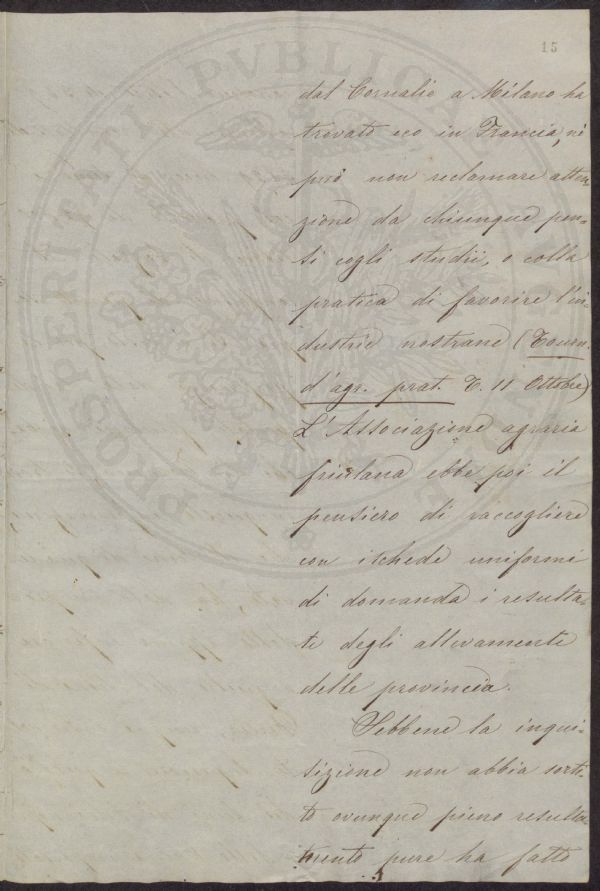 15
dal Cornalio a Milano ha
trovato eco in Francia, nè
può non reclamare atten-
zione da chiunque pen-
si cogli studii, o colla
pratica di favorire l'in-
dustrie nostrane (Journ.
d'agr. prat. T. 11 Ottobre)
L'Associazione agraria
friulana ebbe poi il
pensiero di raccogliere
con ischede uniformi
di domanda i resulta-
ti degli allevamenti
delle provincia.
Sebbene la inqui-
sizione non abbia sorti-
to ovunque pieno resulta-
mento pure ha fatto
PROSPERITATI PVBLICAE AVG